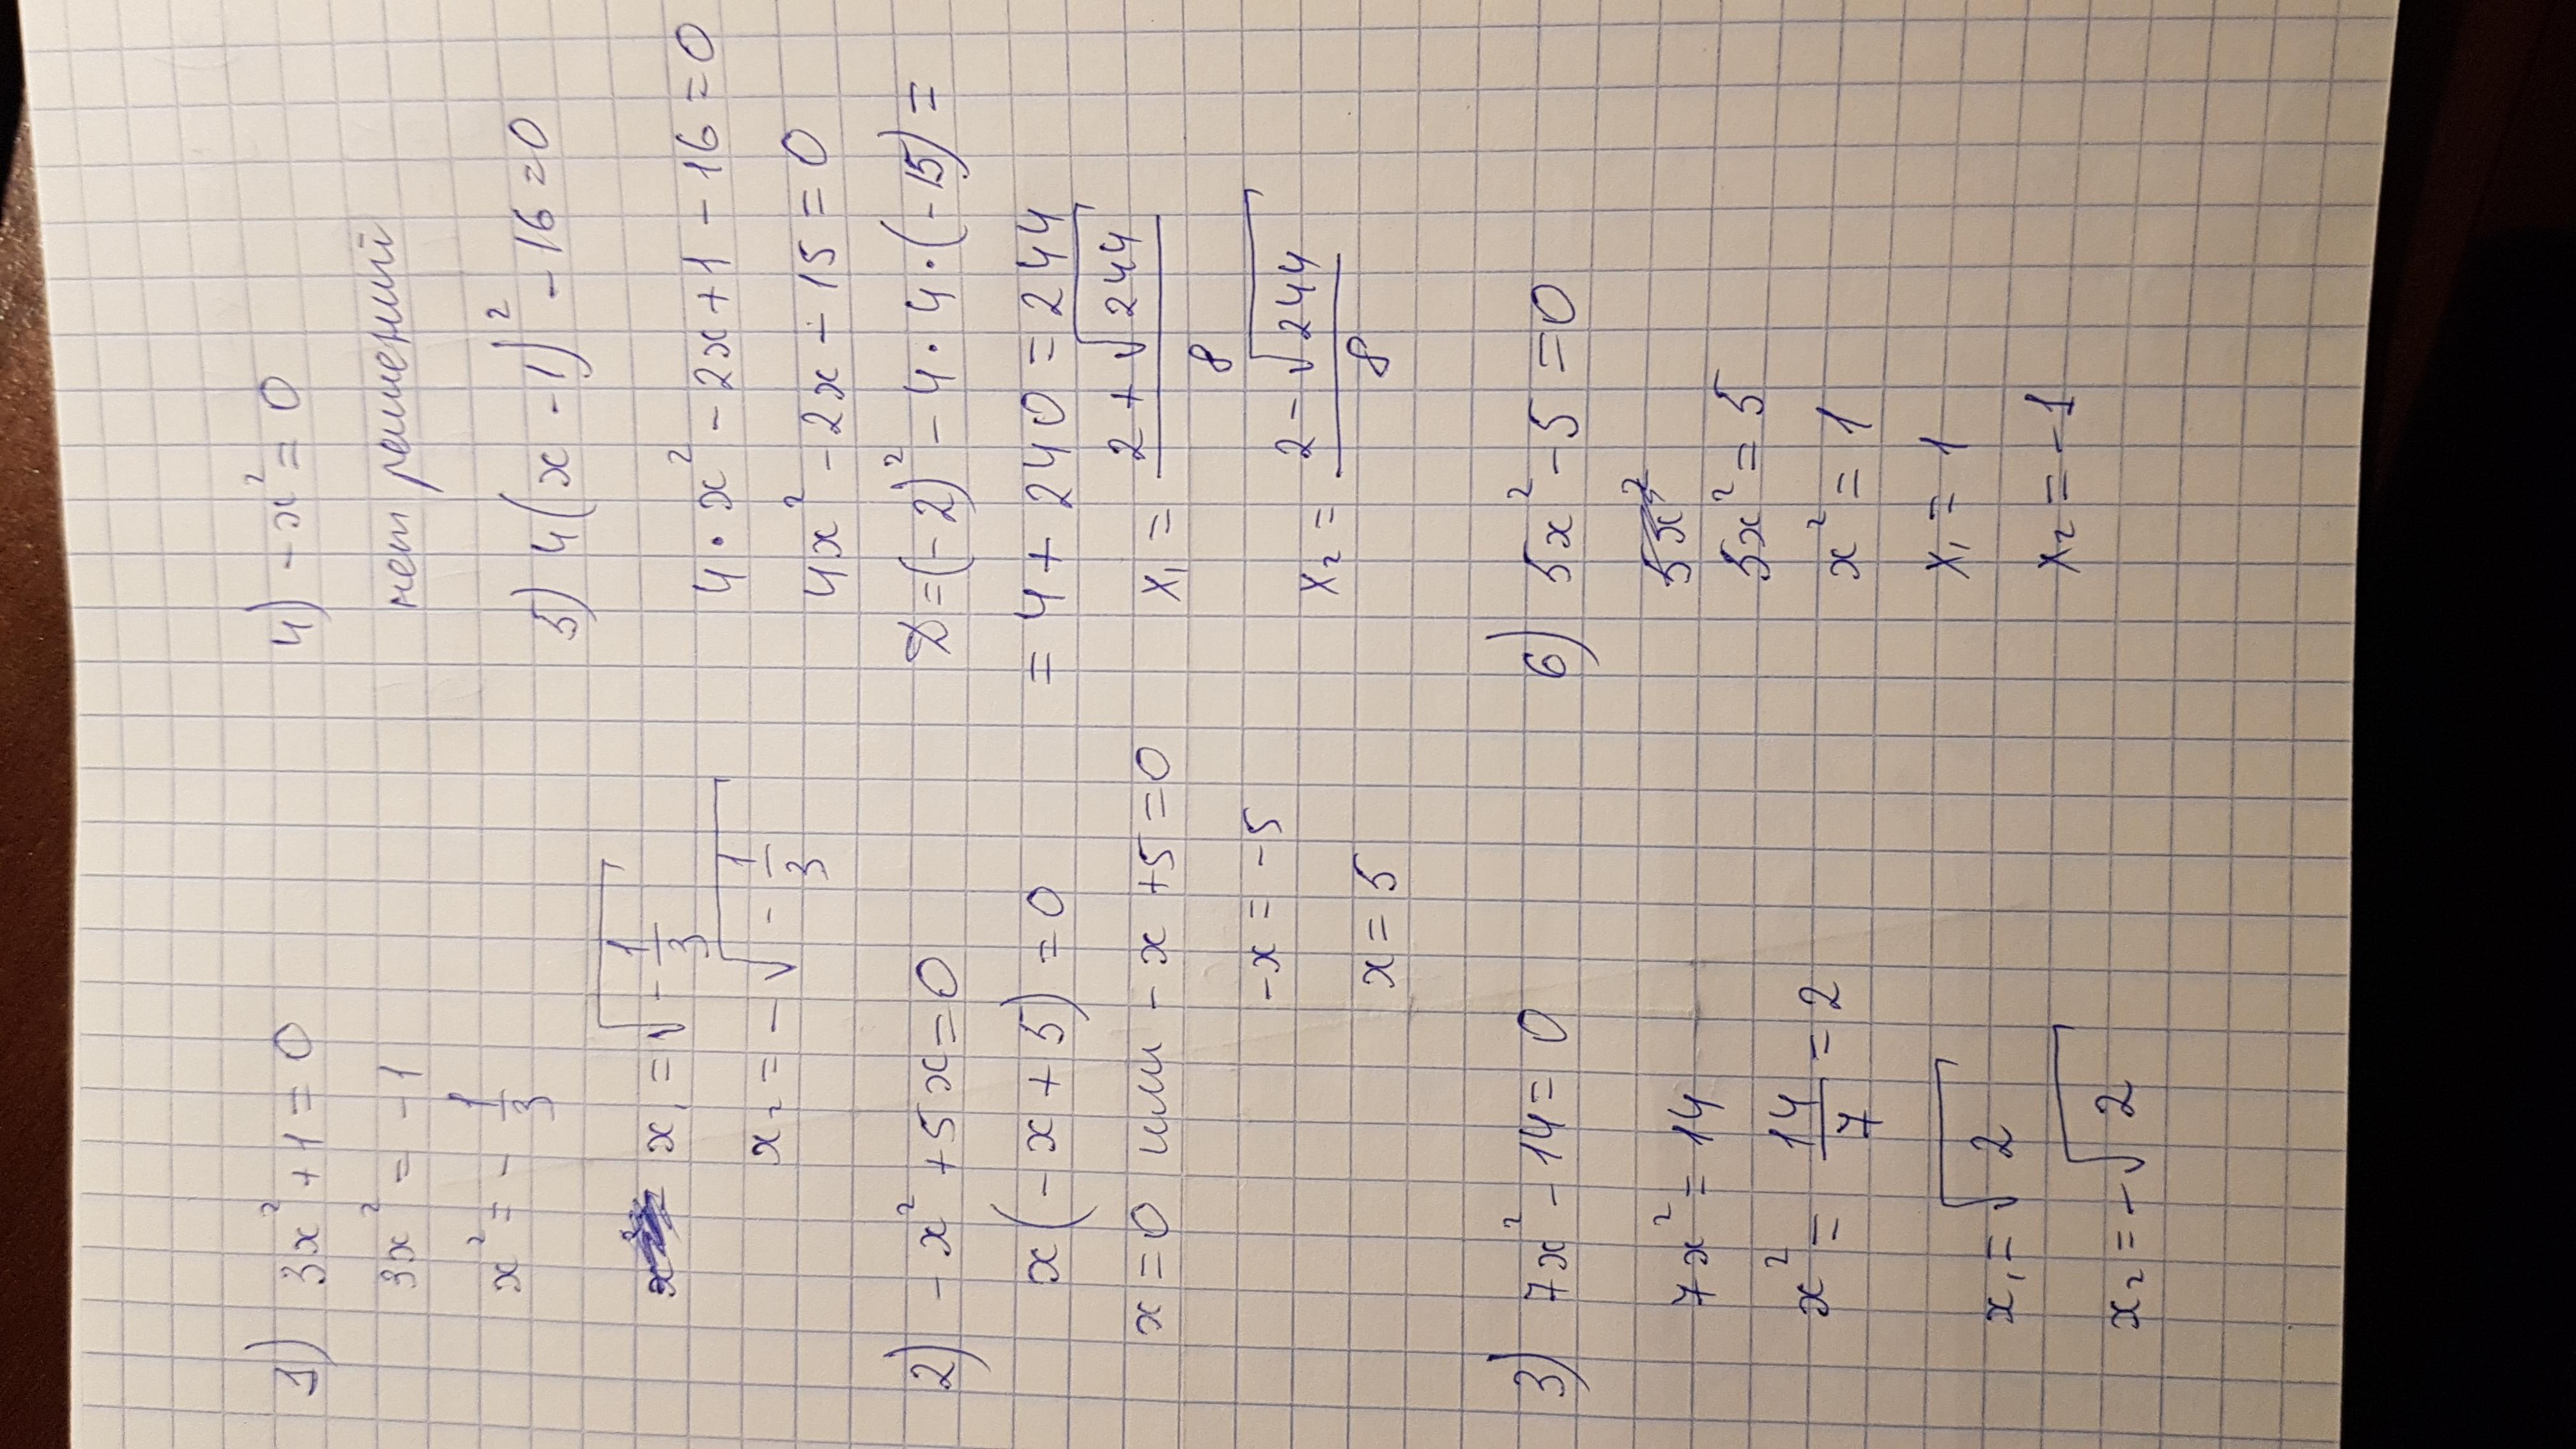 1) 3x² + 1 = 0
3x² = -1
x² = - 1/3
x₁ = √(- 1/3)
x₂ = - √(- 1/3)
2) - x² + 5x = 0
x(- x + 5) = 0
x = 0 или - x + 5 = 0
-x = -5
x = 5
3) 7x² - 14 = 0
7x² = 14
x² = 14/7 = 2
x₁ = √2
x₂ = - √2
4) - x² = 0
нет решений
5) 4(x - 1)² - 16 = 0
4 · x² - 2x + 1 - 16 = 0
4x² - 2x - 15 = 0
D = (-2)² - 4 · 4 · (-15) =
= 4 + 240 = 244
x₁ = (2 + √244)/8
x₂ = (2 - √244)/8
6) 5x² - 5 = 0
5x²
5x² = 5
x² = 1
x₁ = 1
x₂ = -1